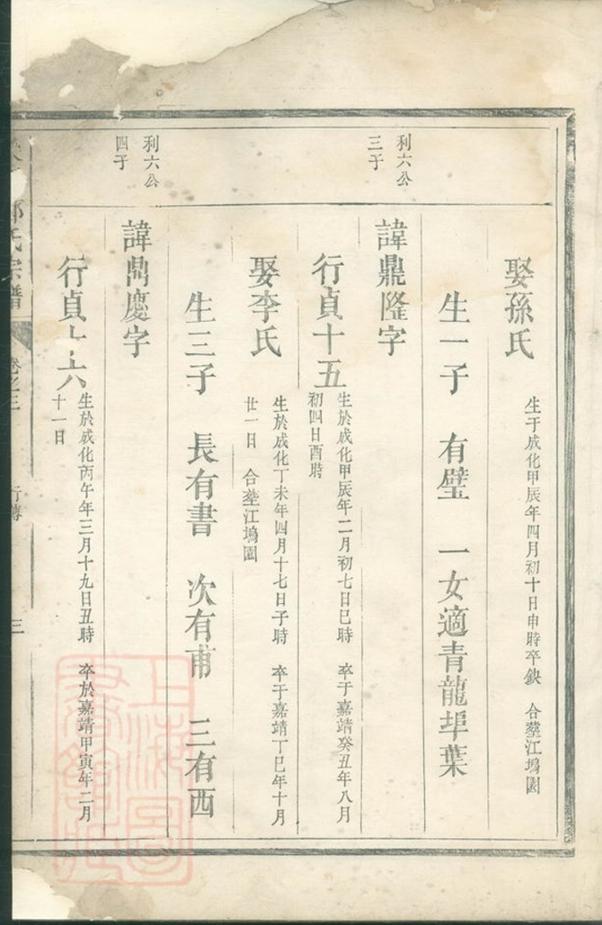 娶孫氏 生于成化甲辰年四月初十日申時卒缺 合塟江塢園
生一子 有璧 一女適青龍埠葉
利六公
三子
諱鼎隆字
行貞十五 生於成化甲辰年二月初七日巳時 卒于嘉靖癸丑年八月
初四日酉時
娶李氏 生於成化丁未年四月十七日子時 卒于嘉靖丁巳年十月
廿一日 合塟江塢園
生三子 長有書 次有甫 三有西
利六公
四子
諱鼎慶字
行貞十六 生於成化丙午年三月十九日丑時 卒於嘉靖甲寅年二月
十一日
氏宗譜 卷之三 行傳 三
上海圖